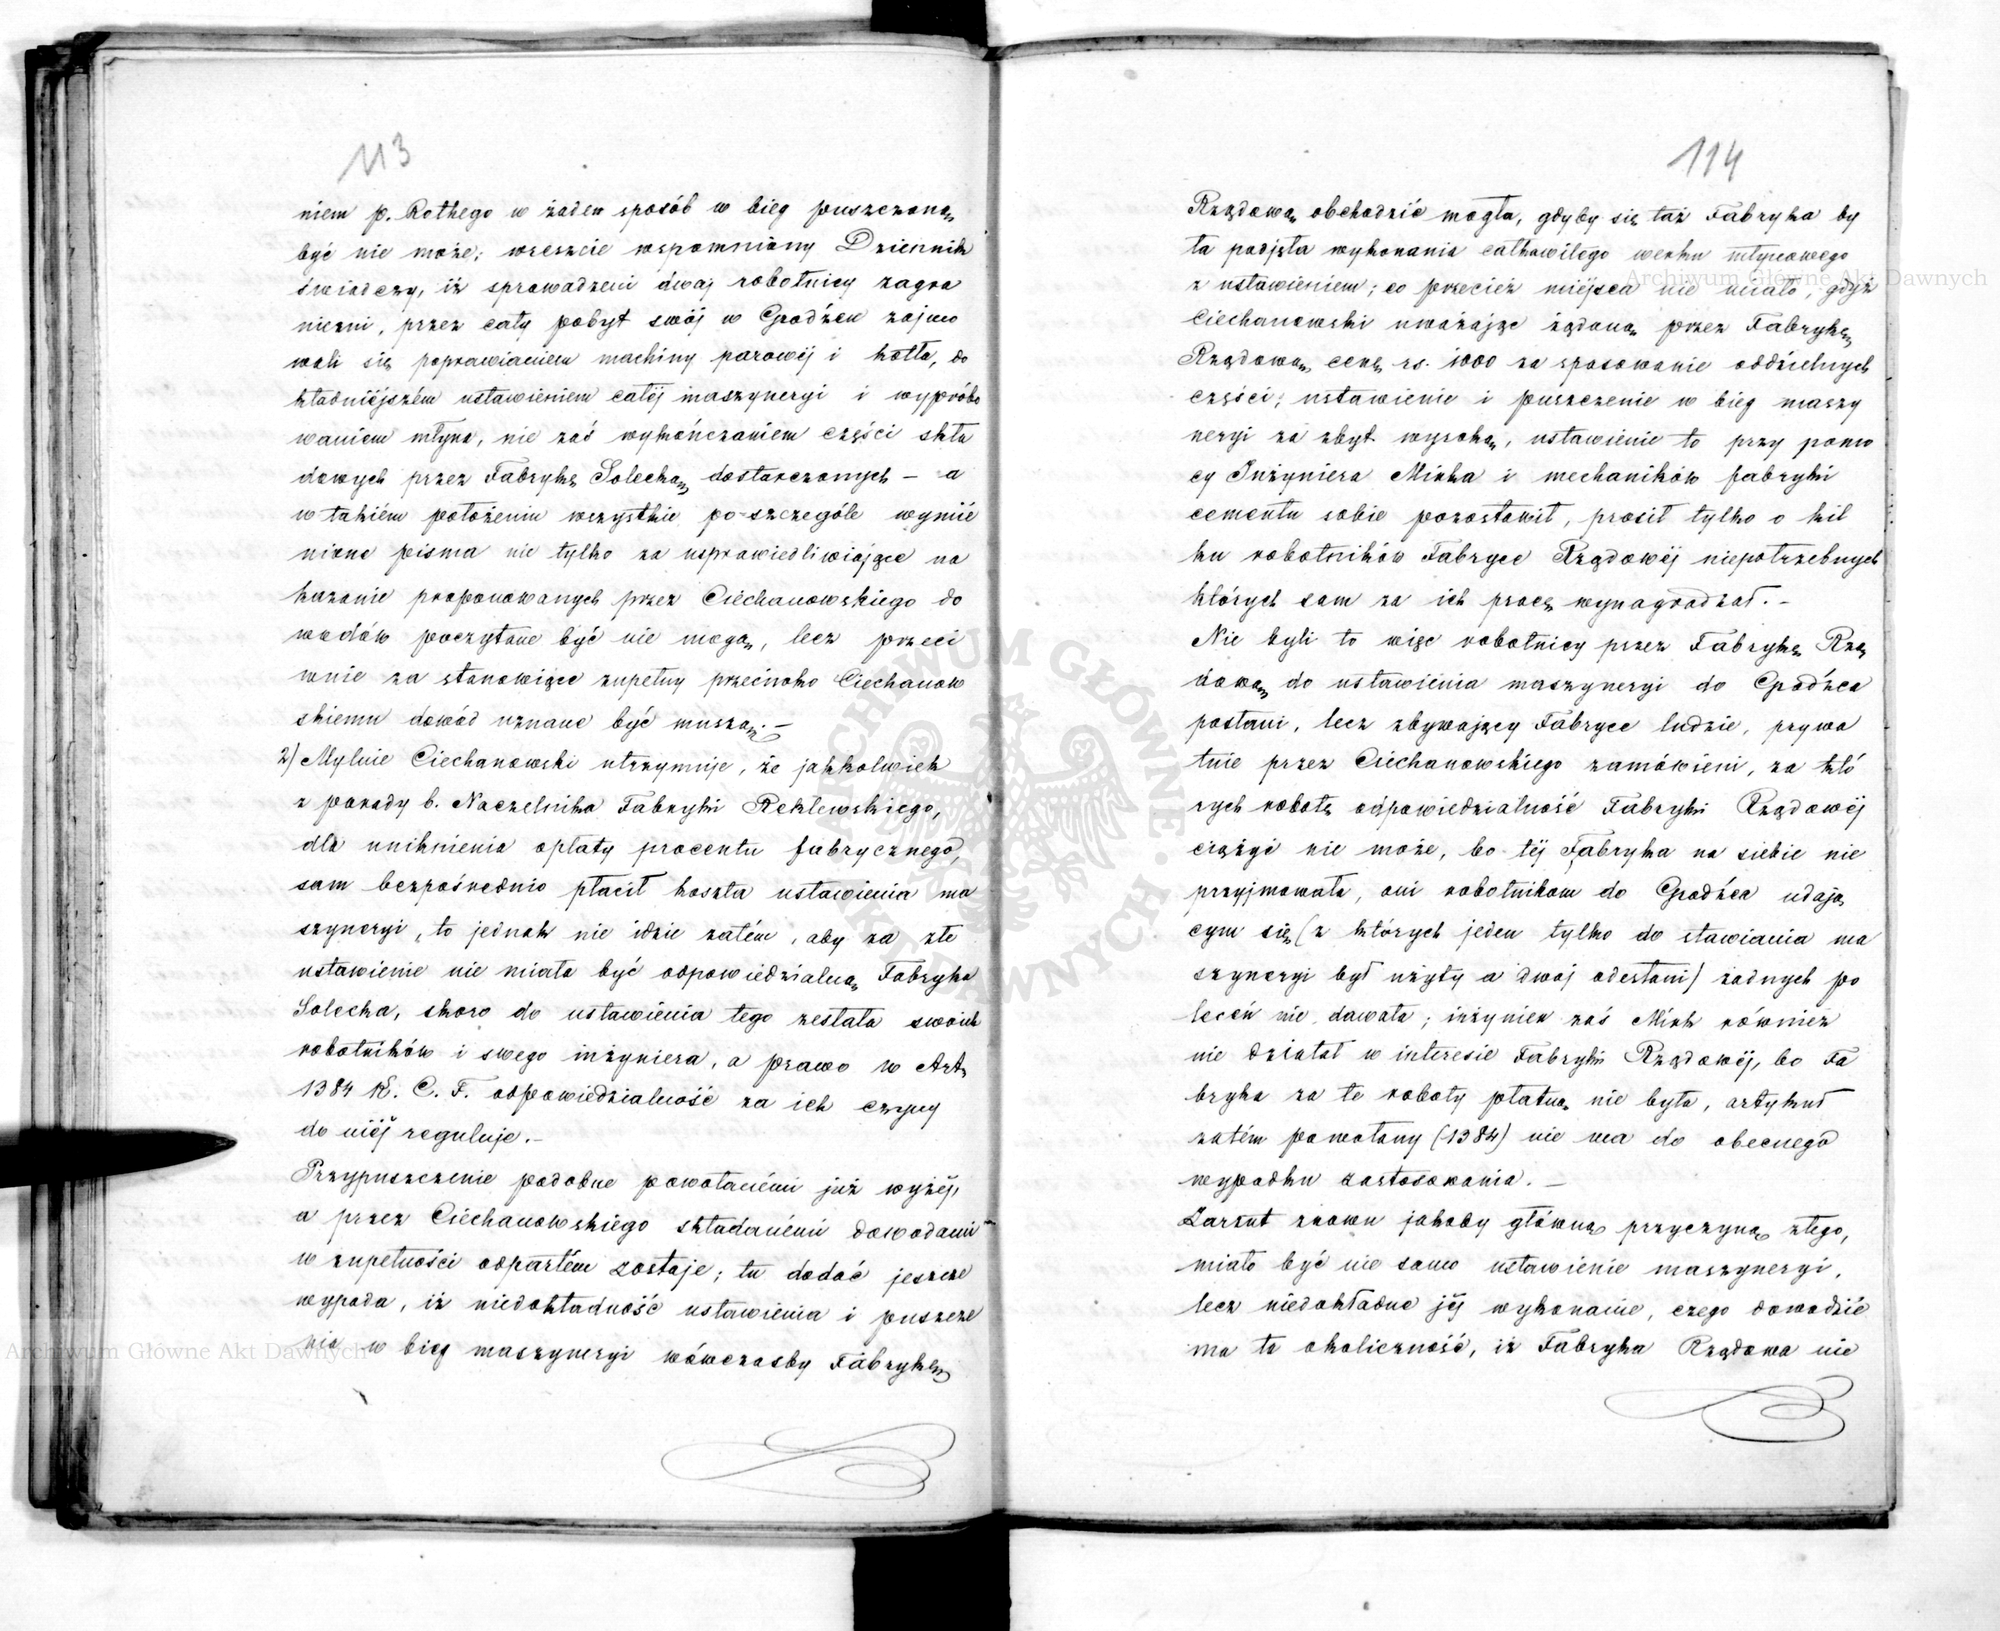 113
niem p. Rothego w żaden sposób w bieg puszczoną
być nie może; wreszcie wspomniony Dziennik
świadczy, iż sprowadzeni dwaj robotnicy zagra
niczni, przez cały pobyt swój w Grodźcu zajmo
wali się poprawianiem machiny parowéj i kotła, do
kładniéjszém ustawieniem całéj maszyneryi i wypróbo
waniem młyna, nie zaś wykończaniem części skła
dowych przez Fabrykę Solecką dostarczonych — a
w takiém położeniu wszystkie po-szczególe wymie
nione pisma nie tylko za usprawiedliwiające na
kazanie proponowanych przez Ciechanowskiego do
wodów poczytane być nie mogą, lecz przeci
wnie za stanowiące zupełny przeciwko Ciechanow
skiemu dowód uznane być muszą. —
2) Mylnie Ciechanowski utrzymuje, że jakkolwiek
z porady b. Naczelnika Fabryki Reklewskiego,
dla uniknienia opłaty procentu fabrycznego,
sam bezpośrednio płacił koszta ustawienia ma
szyneryi, to jednak nie idzie zatém, aby za złe
ustawienie nie miała być odpowiedzialną Fabryka
Solecka, skoro do ustawienia tego zesłała swoich
robotników i swego inżyniera, a prawo w Art.
1384 K. C. F. odpowiedzialność za ich czyny
do niéj reguluje. —
Przypuszczenie podobne powołanémi już wyżéj,
a przez Ciechanowskiego składanémi dowodami
w zupełności odpartém zostaje; tu dodać jeszcze
wypada, iż niedokładność ustawienia i puszcze
nia w bieg maszyneryi wówczasby Fabrykę
114
Rządową obchodzić mogła, gdyby się taż Fabryka by
ła podjęła wykonania całkowitego werku młynowego
z ustawieniem; co przecież miejsca nie miało, gdyż
Ciechanowski uważając żądaną przez Fabrykę
Rządową cenę rs. 1000 za spasowanie oddzielnych
części, ustawienie i puszczenie w bieg maszy
neryi za zbyt wysoką, ustawienie to przy pomo
cy Inżyniera Minka i mechaników fabryki
cementu sobie pozostawił, prosił tylko o kil
ku robotników Fabryce Rządowéj niepotrzebnych
których sam za ich pracę wynagradzał. —
Nie byli to więc robotnicy przez Fabrykę Rzą
dową do ustawienia maszyneryi do Grodźca
posłani, lecz zbywający Fabryce ludzie, prywa
tnie przez Ciechanowskiego zamówieni, za któ
rych robotę odpowiedzialność Fabryki Rządowéj
ciążyć nie może, bo téj Fabryka na siebie nie
przyjmowała, ani robotnikom do Grodźca udają
cym się (z których jeden tylko do stawiania ma
szyneryi był użyty a dwaj odesłani) żadnych po
leceń nie dawała; inżynier zaś Mink również
nie działał w interesie Fabryki Rządowéj, bo Fa
bryka za te roboty płatną nie była, artykuł
zatém powołany (1384) nie ma do obecnego
wypadku zastosowania. —
Zarzut znowu jakoby główną przyczyną złego,
miało być nie samo ustawienie maszyneryi,
lecz niedokładne jéj wykonanie, czego dowodzić
ma ta okoliczność, iż Fabryka Rządowa nie
Archiwum Główne Akt Dawnych
Archiwum Główne Akt Dawnych
ARCHIWUM GŁÓWNE AKT DAWNYCH